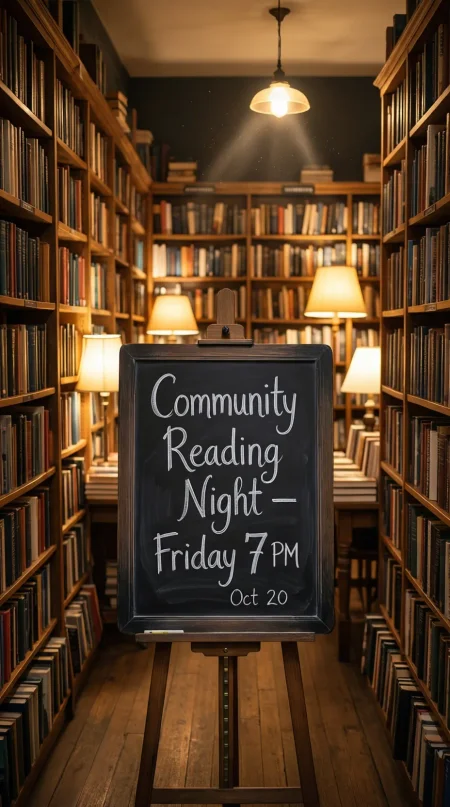 Community
Reading
Night –
Friday 7 PM
Oct 20